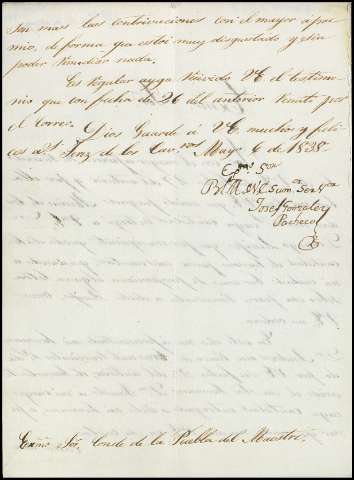 son mas las contribuciones con el mayor apre
mio, de forma que estoi muy disgustado y sin
poder remediar nada.
Es regular ayga recivido VE el testimo
nio que con fecha de 26 del anterior remiti por
el correo. Dios Guarde á VE muchos y feli
ces a.s Xerez de los Cav.ros Mayo 6 de 1838
Exmo Sor
B. L. M. de VE su m.or Servidor
Josef Gonzalez
Pacheco
Exmo Sor. Conde de la Puebla del Maestre.